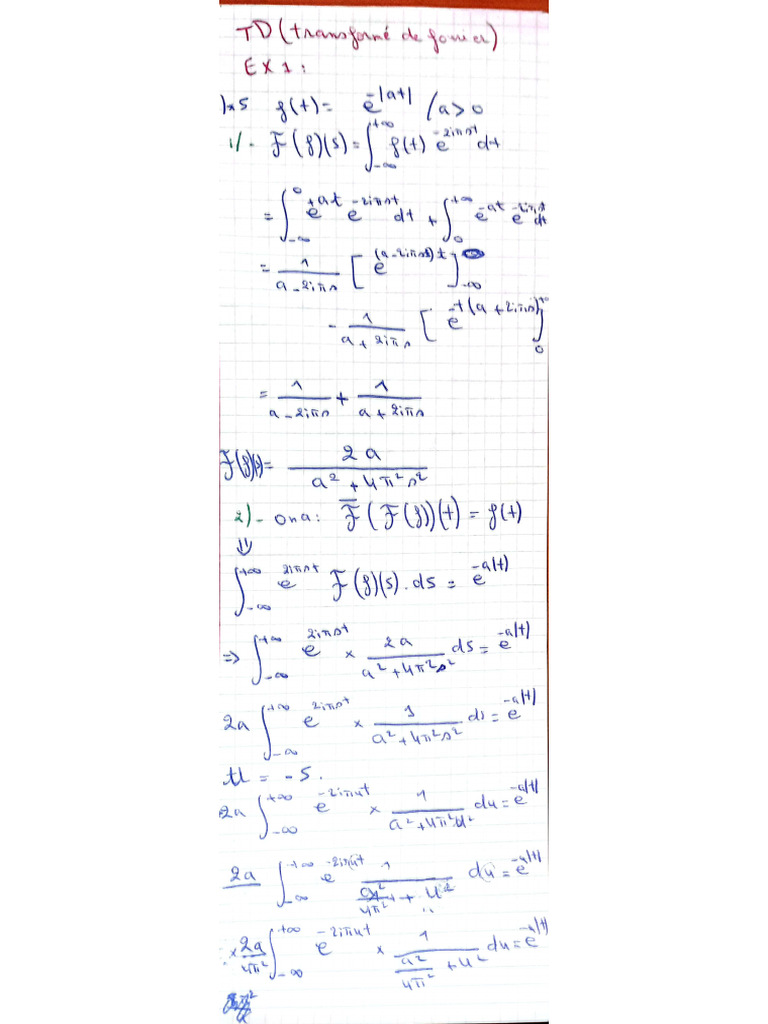 TD (transformé de fourier)
EX 1 :
f(t) = e^{-|at|} / a > 0
1/- F(f)(s) = ∫_{-∞}^{+∞} f(t) e^{-2iπst} dt
= ∫_{-∞}^{0} e^{+at} e^{-2iπst} dt + ∫_{0}^{+∞} e^{-at} e^{-2iπst} dt
= 1/(a - 2iπs) [ e^{(a-2iπs)t} ]_{-∞}
- 1/(a + 2iπs) [ e^{-t(a+2iπs)} ]_{0}^{+∞}
= 1/(a - 2iπs) + 1/(a + 2iπs)
F(f)(s) = 2a/(a² + 4π²s²)
2)- on a : F̅(F(f))(t) = f(t)
⇓
∫_{-∞}^{+∞} e^{2iπst} F(f)(s) . ds = e^{-a(t)}
⇒ ∫_{-∞}^{+∞} e^{2iπst} × 2a/(a² + 4π²s²) ds = e^{-a|t|}
2a ∫_{-∞}^{+∞} e^{2iπst} × 1/(a² + 4π²s²) ds = e^{-a|t|}
u = -s.
2a ∫_{-∞}^{+∞} e^{-2iπut} × 1/(a² + 4π²u²) du = e^{-a|t|}
2a ∫_{-∞}^{+∞} e^{-2iπut} 1/(a²/4π² + u²) du = e^{-a|t|}
× 2a/4π² ∫_{-∞}^{+∞} e^{-2iπut} × 1/(a²/4π² + u²) du = e^{-a|t|}